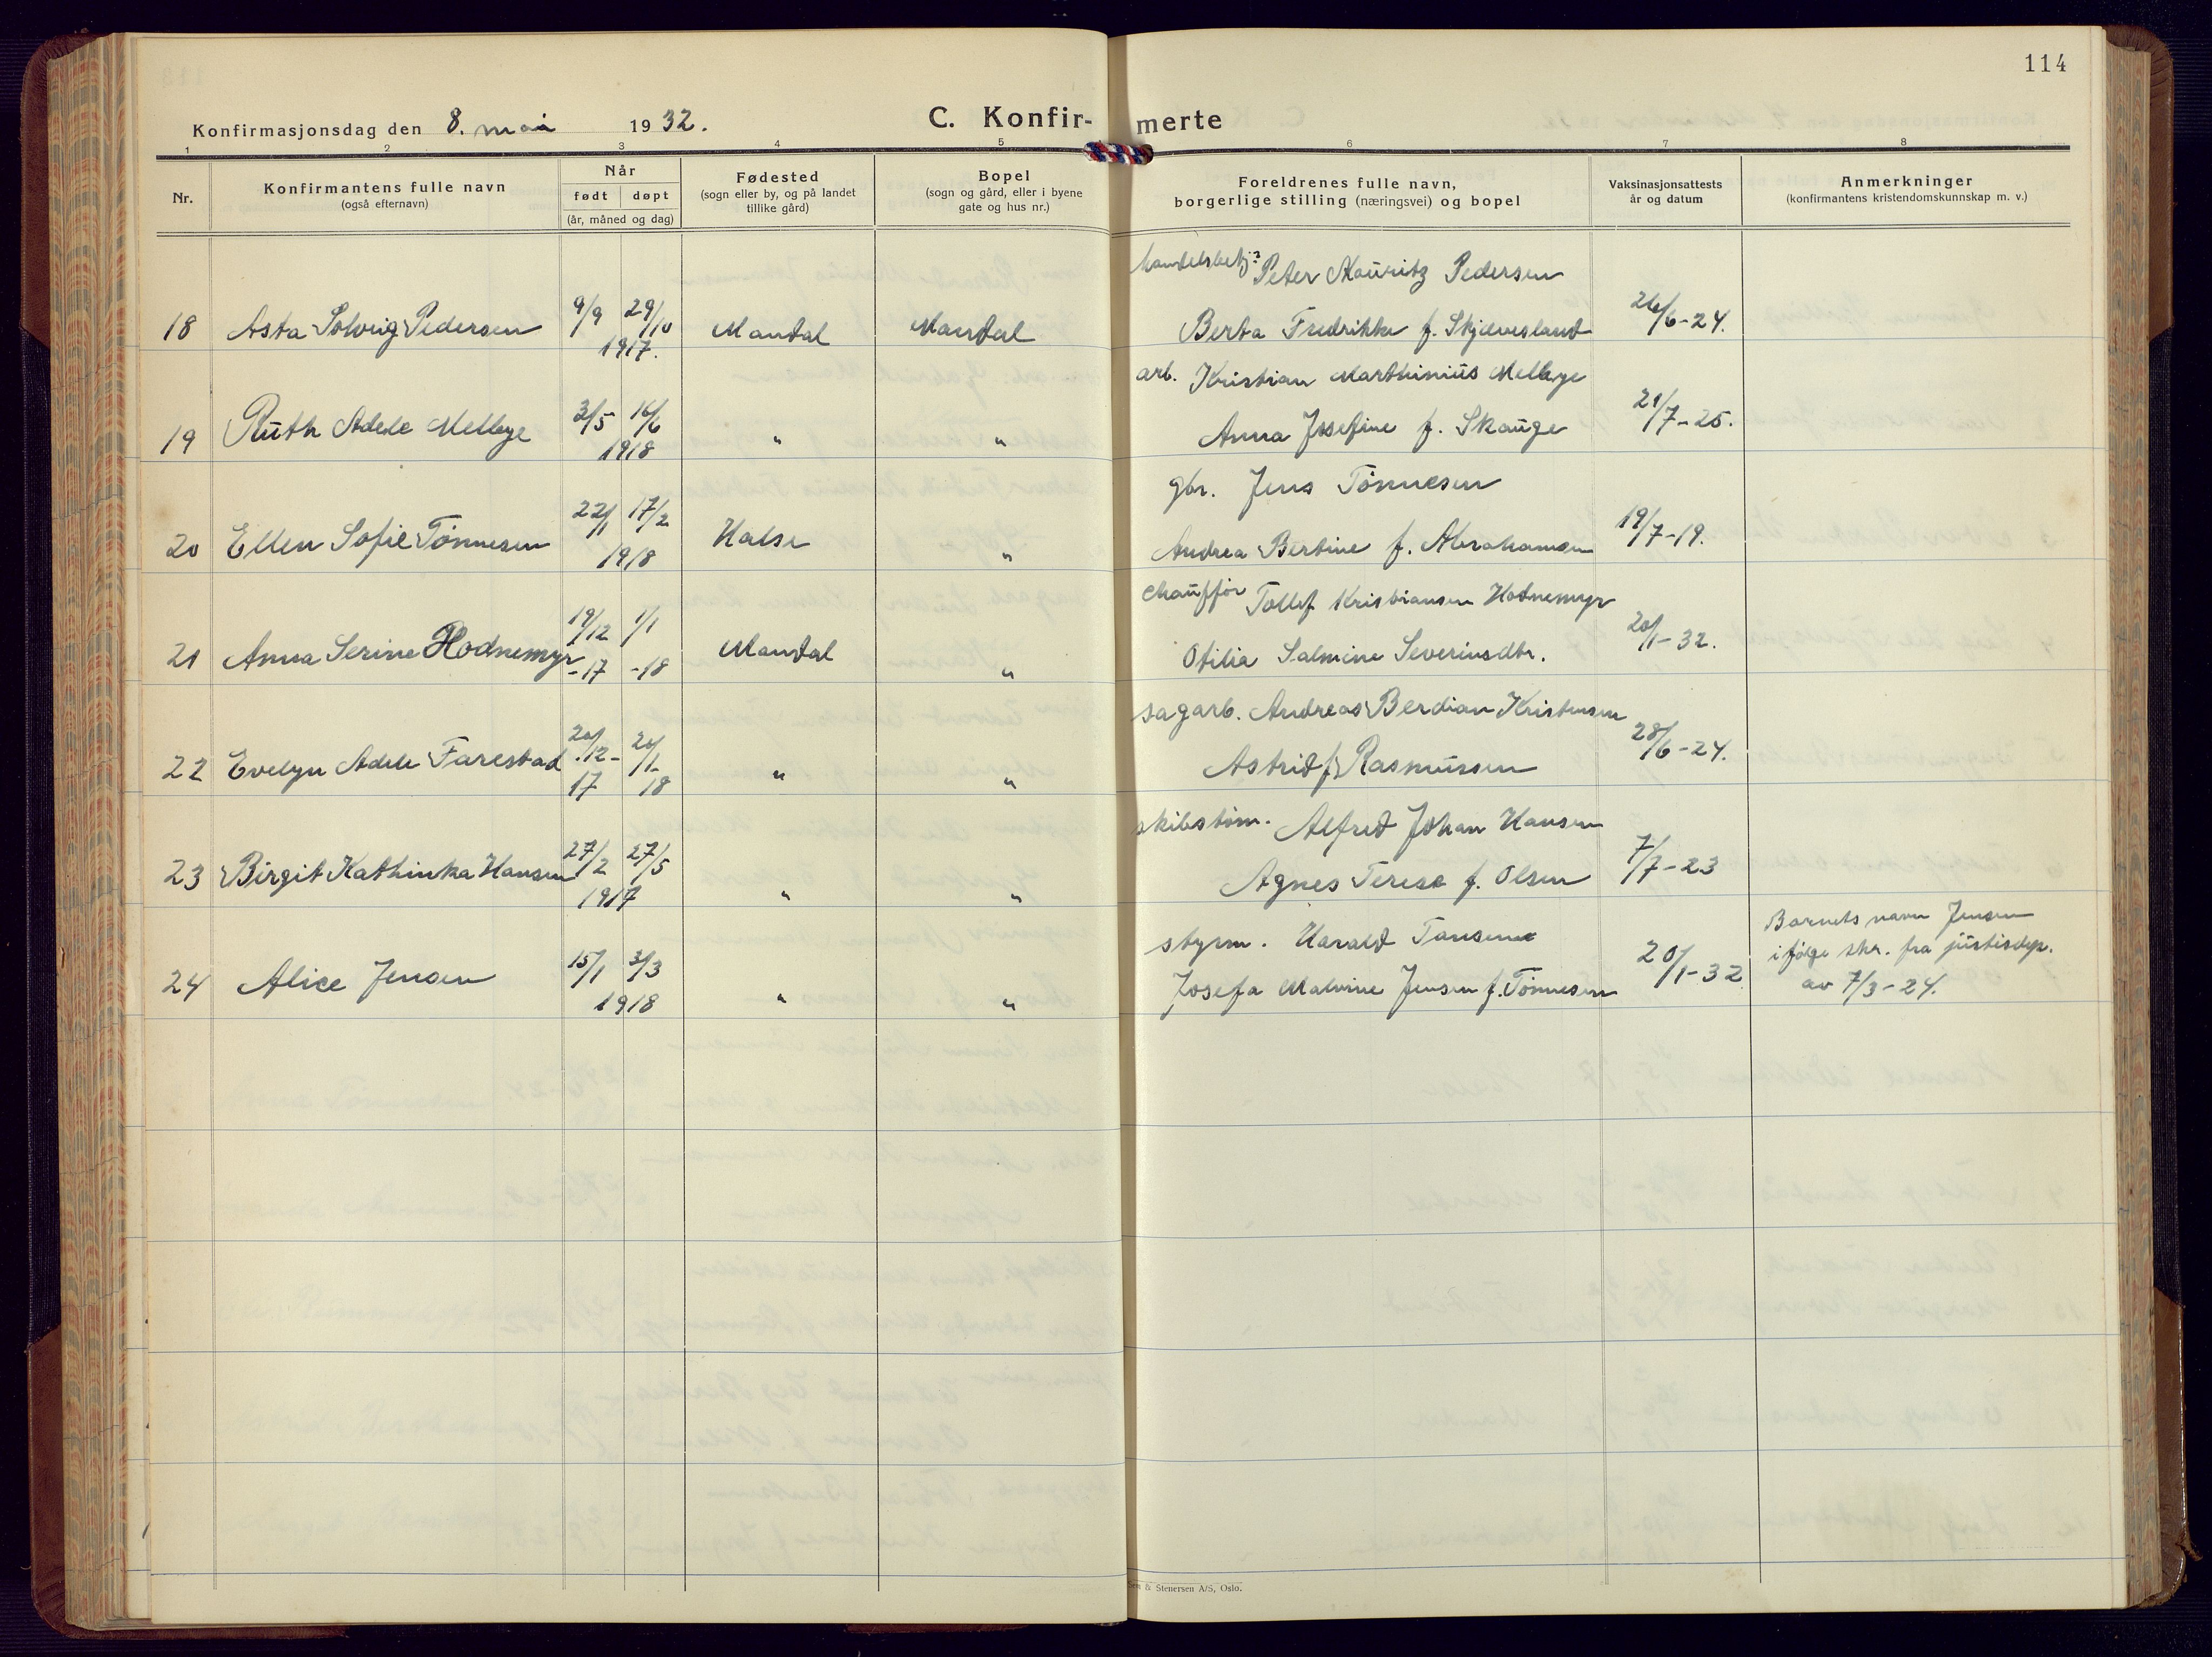 114
Konfirmasjonsdag den 8. mai 1932.
C. Konfir- merte
1 2 3 4 5 6 7 8
Nr.
Konfirmantens fulle navn
(også efternavn)
Når
født døpt
(år, måned og dag)
Fødested
(sogn eller by, og på landet
tillike gård)
Bopel
(sogn og gård, eller i byene
gate og hus nr.)
Foreldrenes fulle navn,
borgerlige stilling (næringsvei) og bopel
Vaksinasjonsattests
år og datum
Anmerkninger
(konfirmantens kristendomskunnskap m. v.)
handelsbetj. Peter Mauritz Pedersen
18 Asta Solveig Pedersen 9/9 29/10 1917. Mandal Mandal Berta Fredrikke f. Skjævesland 26/6-24.
arb. Kristian Marthinius Melbye
19 Ruth Adele Melbye 3/5 16/6 1918 " " Anna Josefine f. Skauge 21/7-25.
gbr. Jens Tønnesen
20 Ellen Sofie Tønnesen 22/1 17/2 1918 Halse " Andrea Bertine f. Abrahamsen 19/7-19.
chauffør Tollef Kristiansen Hodnemyr
21 Anna Serine Hodnemyr 19/12 -17 1/1 -18 Mandal " Otilia Salmine Severinsdtr. 20/1-32.
sagarb. Andreas Berdian Kristensen
22 Evelyn Adele Farestad 20/12- 17 20/1- 18 " " Astrid f. Rasmussen 28/6-24.
skibstøm. Alfred Johan Hansen
23 Birgit Kathinka Hansen 27/2 27/5 1917 " " Agnes Terese f. Olsen 7/7-23
styrm. Harald Tansem
24 Alice Jensen 15/1 3/3 1918 " " Josefa Malvine Jensen f. Tønnesen 20/1-32
Barnets navn Jensen
ifølge skr. fra justisdep.
av 7/3-24.
& Stenersen A/S, Oslo.